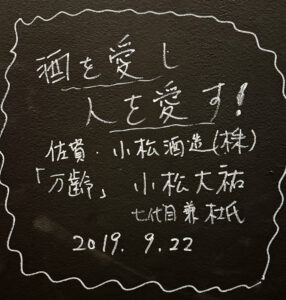 酒を愛し
人を愛す!
佐賀・小松酒造(株)
「万齢」 小松大祐
七代目兼杜氏
2019. 9. 22